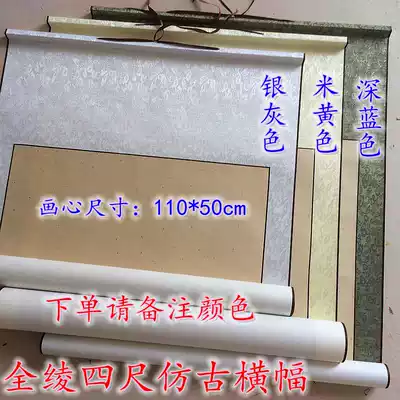 银灰色
米黄色
深蓝色
画心尺寸：110*50cm
下单请备注颜色
全绫四尺仿古横幅